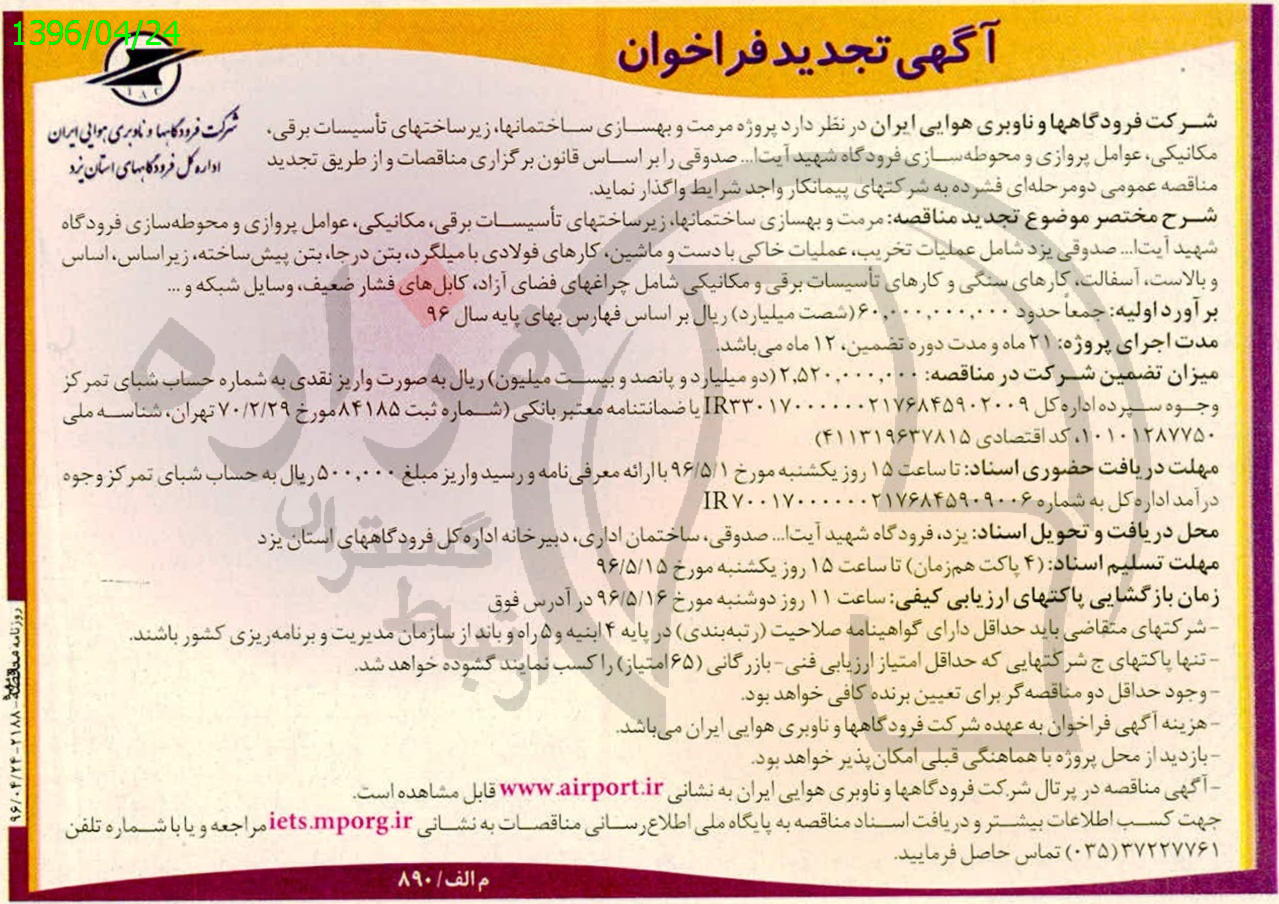 1396/04/24
آگهی تجدید فراخوان
IAC
شرکت فرودگاهها و ناوبری هوایی ایران
اداره کل فرودگاههای استان یزد
شرکت فرودگاهها و ناوبری هوایی ایران در نظر دارد پروژه مرمت و بهسازی ساختمانها، زیرساختهای تأسیسات برقی،
مکانیکی، عوامل پروازی و محوطه‌سازی فرودگاه شهید آیت‌ا... صدوقی را بر اساس قانون برگزاری مناقصات و از طریق تجدید
مناقصه عمومی دومرحله‌ای فشرده به شرکتهای پیمانکار واجد شرایط واگذار نماید.
شرح مختصر موضوع تجدید مناقصه: مرمت و بهسازی ساختمانها، زیرساختهای تأسیسات برقی، مکانیکی، عوامل پروازی و محوطه‌سازی فرودگاه
شهید آیت‌ا... صدوقی یزد شامل عملیات تخریب، عملیات خاکی با دست و ماشین، کارهای فولادی با میلگرد، بتن درجا، بتن پیش‌ساخته، زیراساس، اساس
و بالاست، آسفالت، کارهای سنگی و کارهای تأسیسات برقی و مکانیکی شامل چراغهای فضای آزاد، کابل‌های فشار ضعیف، وسایل شبکه و ...
برآورد اولیه: جمعاً حدود ۶۰,۰۰۰,۰۰۰,۰۰۰ (شصت میلیارد) ریال بر اساس فهارس بهای پایه سال ۹۶
مدت اجرای پروژه: ۲۱ ماه و مدت دوره تضمین، ۱۲ ماه می‌باشد.
میزان تضمین شرکت در مناقصه: ۲,۵۲۰,۰۰۰,۰۰۰ (دو میلیارد و پانصد و بیست میلیون) ریال به صورت واریز نقدی به شماره حساب شبای تمرکز
وجوه سپرده اداره کل IR۳۳۰۱۷۰۰۰۰۰۰۰۲۱۷۶۸۴۵۹۰۲۰۰۹ یا ضمانتنامه معتبر بانکی (شماره ثبت ۸۴۱۸۵ مورخ ۷۰/۲/۲۹ تهران، شناسه ملی
۱۰۱۰۱۲۸۷۷۵۰، کد اقتصادی ۴۱۱۳۱۹۶۳۷۸۱۵)
مهلت دریافت حضوری اسناد: تا ساعت ۱۵ روز یکشنبه مورخ ۹۶/۵/۱ با ارائه معرفی‌نامه و رسید واریز مبلغ ۵۰۰,۰۰۰ ریال به حساب شبای تمرکز وجوه
درآمد اداره کل به شماره IR۷۰۰۱۷۰۰۰۰۰۰۰۲۱۷۶۸۴۵۹۰۹۰۰۶
محل دریافت و تحویل اسناد: یزد، فرودگاه شهید آیت‌ا... صدوقی، ساختمان اداری، دبیرخانه اداره کل فرودگاههای استان یزد
مهلت تسلیم اسناد: (۴ پاکت هم‌زمان) تا ساعت ۱۵ روز یکشنبه مورخ ۹۶/۵/۱۵
زمان بازگشایی پاکتهای ارزیابی کیفی: ساعت ۱۱ روز دوشنبه مورخ ۹۶/۵/۱۶ در آدرس فوق
- شرکتهای متقاضی باید حداقل دارای گواهینامه صلاحیت (رتبه‌بندی) در پایه ۴ ابنیه و ۵ راه و باند از سازمان مدیریت و برنامه‌ریزی کشور باشند.
- تنها پاکتهای ج شرکتهایی که حداقل امتیاز ارزیابی فنی- بازرگانی (۶۵ امتیاز) را کسب نمایند گشوده خواهد شد.
- وجود حداقل دو مناقصه‌گر برای تعیین برنده کافی خواهد بود.
- هزینه آگهی فراخوان به عهده شرکت فرودگاهها و ناوبری هوایی ایران می‌باشد.
- بازدید از محل پروژه با هماهنگی قبلی امکان‌پذیر خواهد بود.
- آگهی مناقصه در پرتال شرکت فرودگاهها و ناوبری هوایی ایران به نشانی www.airport.ir قابل مشاهده است.
جهت کسب اطلاعات بیشتر و دریافت اسناد مناقصه به پایگاه ملی اطلاع‌رسانی مناقصات به نشانی iets.mporg.ir مراجعه و یا با شماره تلفن
۳۷۲۲۷۷۶۱ (۰۳۵) تماس حاصل فرمایید.
م الف/ ۸۹۰
روزنامه مناقصه مزایده - ۲۱۸۸ - ۹۶/۰۴/۲۴
هزاره
گستران
ارتباط